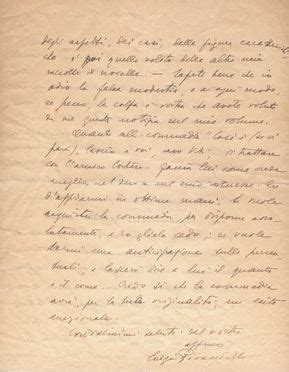 degli aspetti, dei casi, della figura
è poi quella solita delle altre mie
raccolte di novelle. — Sapete bene che io
odio la falsa modestia, e a ogni modo,
se pecco, la colpa è vostra che avete voluto
da me questa notizia sul mio volume.
Quanto alla commedia "Così è (se vi
pare), lascio a voi, trattare
con l'amico Faccia lui come crede
meglio, nel suo e nel mio interesse. So
d'affidarmi in ottime mani. Se vuole
acquistar la commedia, per disporne asso-
lutamente, e io gliela cedo; se vuole
darmi una anticipazione sulle percen-
tuali, e lascerò dire a lui il quanto
e il come. Credo di che la commedia
avrà, per la sua originalità, un esito
eccezionale.
Cordialissimi saluti dal vostro
affmo
Luigi Pirandello